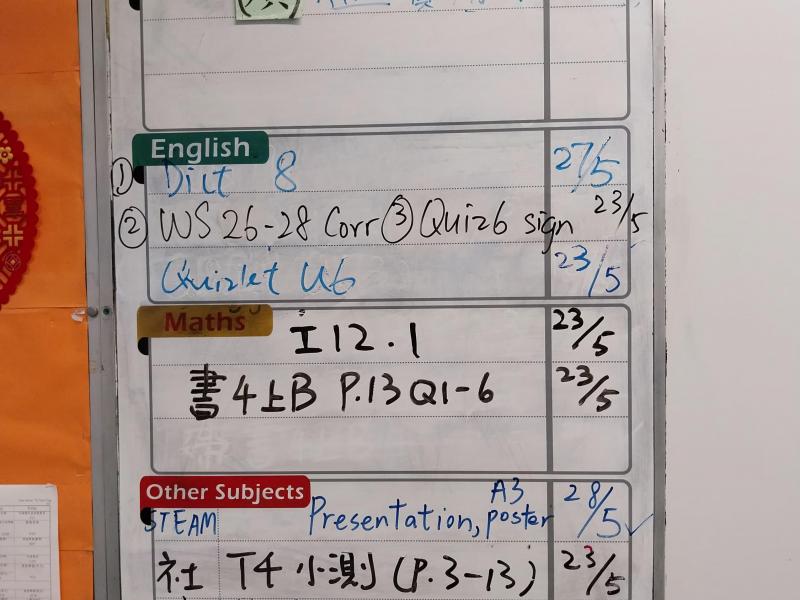 English
① Dict 8 27/5
② WS 26-28 Corr ③ Quiz6 sign 23/5
Quizlet U6 23/5
Maths
工12.1 23/5
書4上B P.13 Q1-6 23/5
Other Subjects
STEAM Presentation, A3 poster 28/5 ✓
社 T4 小測 (P.3-13) 23/5